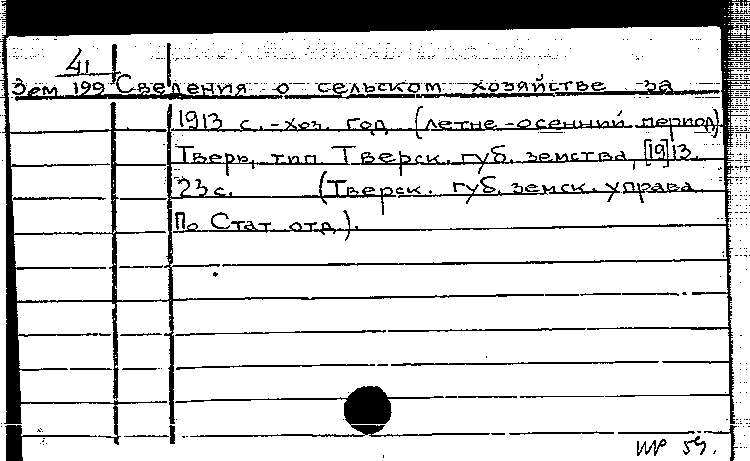 41
Зем 199 Сведения о сельском хозяйстве за
1913 с.-хоз. год (летне-осенний период)
Тверь, тип. Тверск. губ. земства, [19]13.
23 с. (Тверск. губ. земск. управа.
По Стат. отд.).